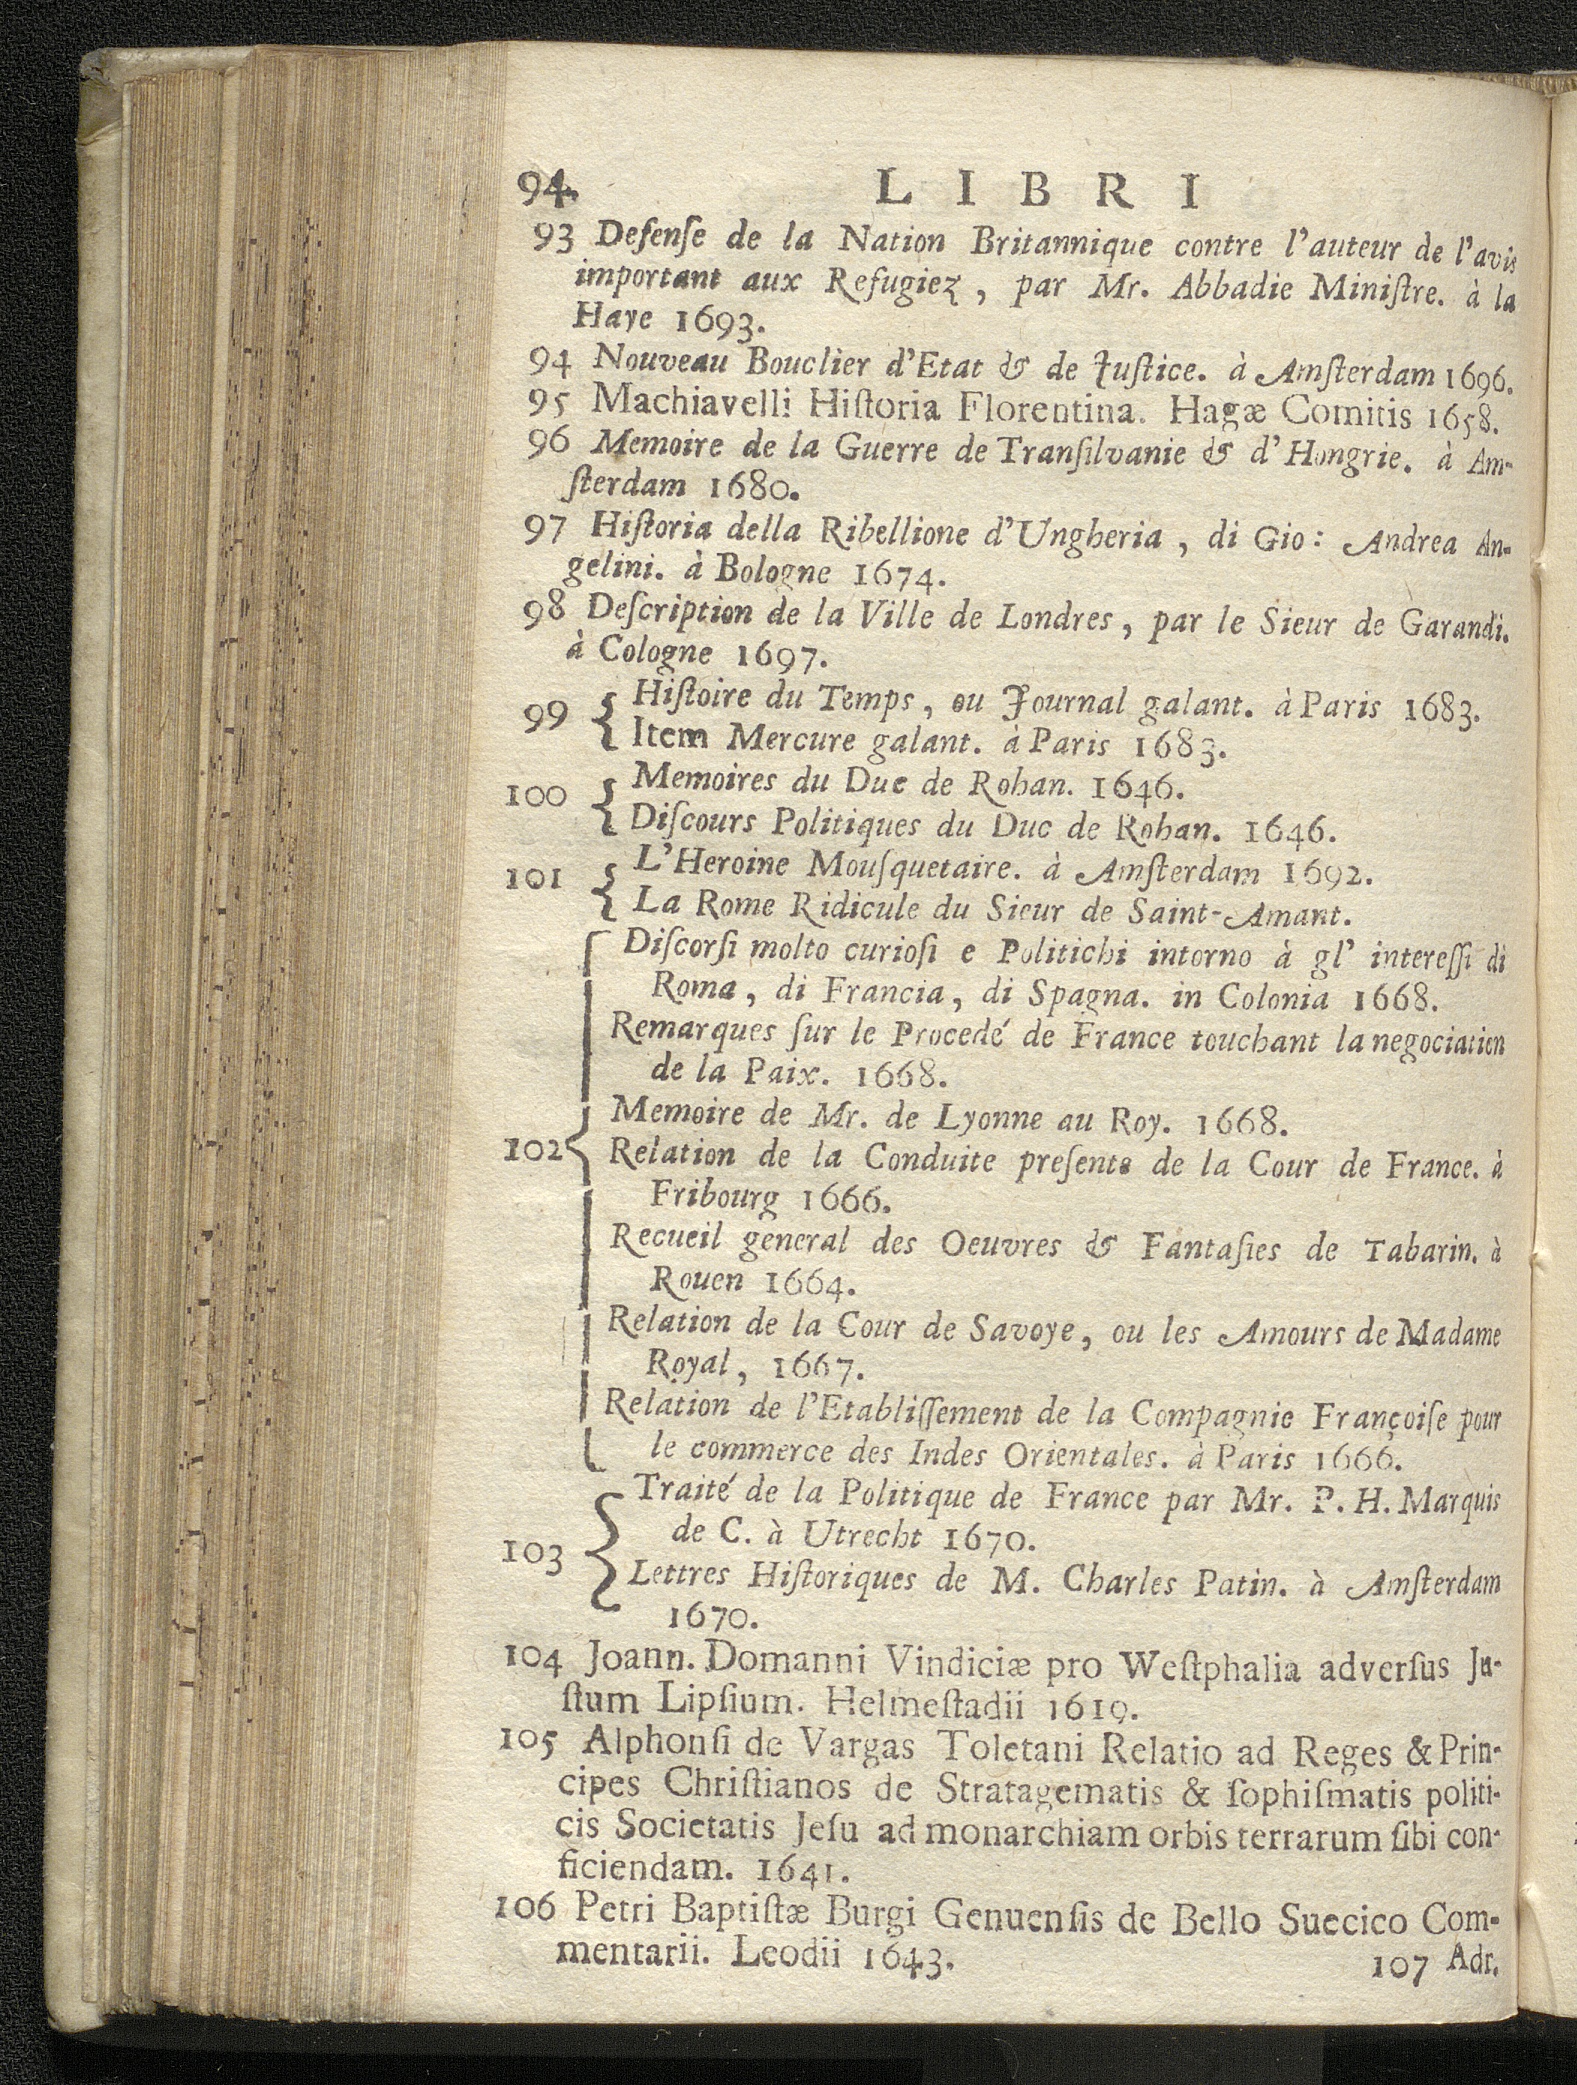 94. LIBRI
93 Defenſe de la Nation Britannique contre l'auteur de l'avis
important aux Refugiez, par Mr. Abbadie Miniſtre. à la
Haye 1693.
94 Nouveau Bouclier d'Etat & de Juſtice. à Amſterdam 1696.
95 Machiavelli Hiſtoria Florentina. Hagæ Comitis 1658.
96 Memoire de la Guerre de Tranſilvanie & d'Hongrie. à Am-
ſterdam 1680.
97 Hiſtoria della Ribellione d'Ungheria, di Gio: Andrea An-
gelini. à Bologne 1674.
98 Deſcription de la Ville de Londres, par le Sieur de Garandi.
à Cologne 1697.
99 { Hiſtoire du Temps, ou Journal galant. à Paris 1683.
Item Mercure galant. à Paris 1683.
100 { Memoires du Duc de Rohan. 1646.
Diſcours Politiques du Duc de Rohan. 1646.
101 { L'Heroine Mouſquetaire. à Amſterdam 1692.
La Rome Ridicule du Sieur de Saint-Amant.
Diſcorſi molto curioſi e Politichi intorno à gl' intereſſi di
Roma, di Francia, di Spagna. in Colonia 1668.
Remarques ſur le Procedé de France touchant la negociation
de la Paix. 1668.
Memoire de Mr. de Lyonne au Roy. 1668.
102 { Relation de la Conduite preſente de la Cour de France. à
Fribourg 1666.
Recueil general des Oeuvres & Fantaſies de Tabarin. à
Rouen 1664.
Relation de la Cour de Savoye, ou les Amours de Madame
Royal, 1667.
Relation de l'Etabliſſement de la Compagnie Françoiſe pour
le commerce des Indes Orientales. à Paris 1666.
Traité de la Politique de France par Mr. P. H. Marquis
de C. à Utrecht 1670.
103 { Lettres Hiſtoriques de M. Charles Patin. à Amſterdam
1670.
104 Joann. Domanni Vindiciæ pro Weſtphalia adverſus Ju-
ſtum Lipſium. Helmeſtadii 1619.
105 Alphonſi de Vargas Toletani Relatio ad Reges & Prin-
cipes Chriſtianos de Stratagematis & ſophiſmatis politi-
cis Societatis Jeſu ad monarchiam orbis terrarum ſibi con-
ficiendam. 1641.
106 Petri Baptiſtæ Burgi Genuenſis de Bello Suecico Com-
mentarii. Leodii 1643.
107 Adr.